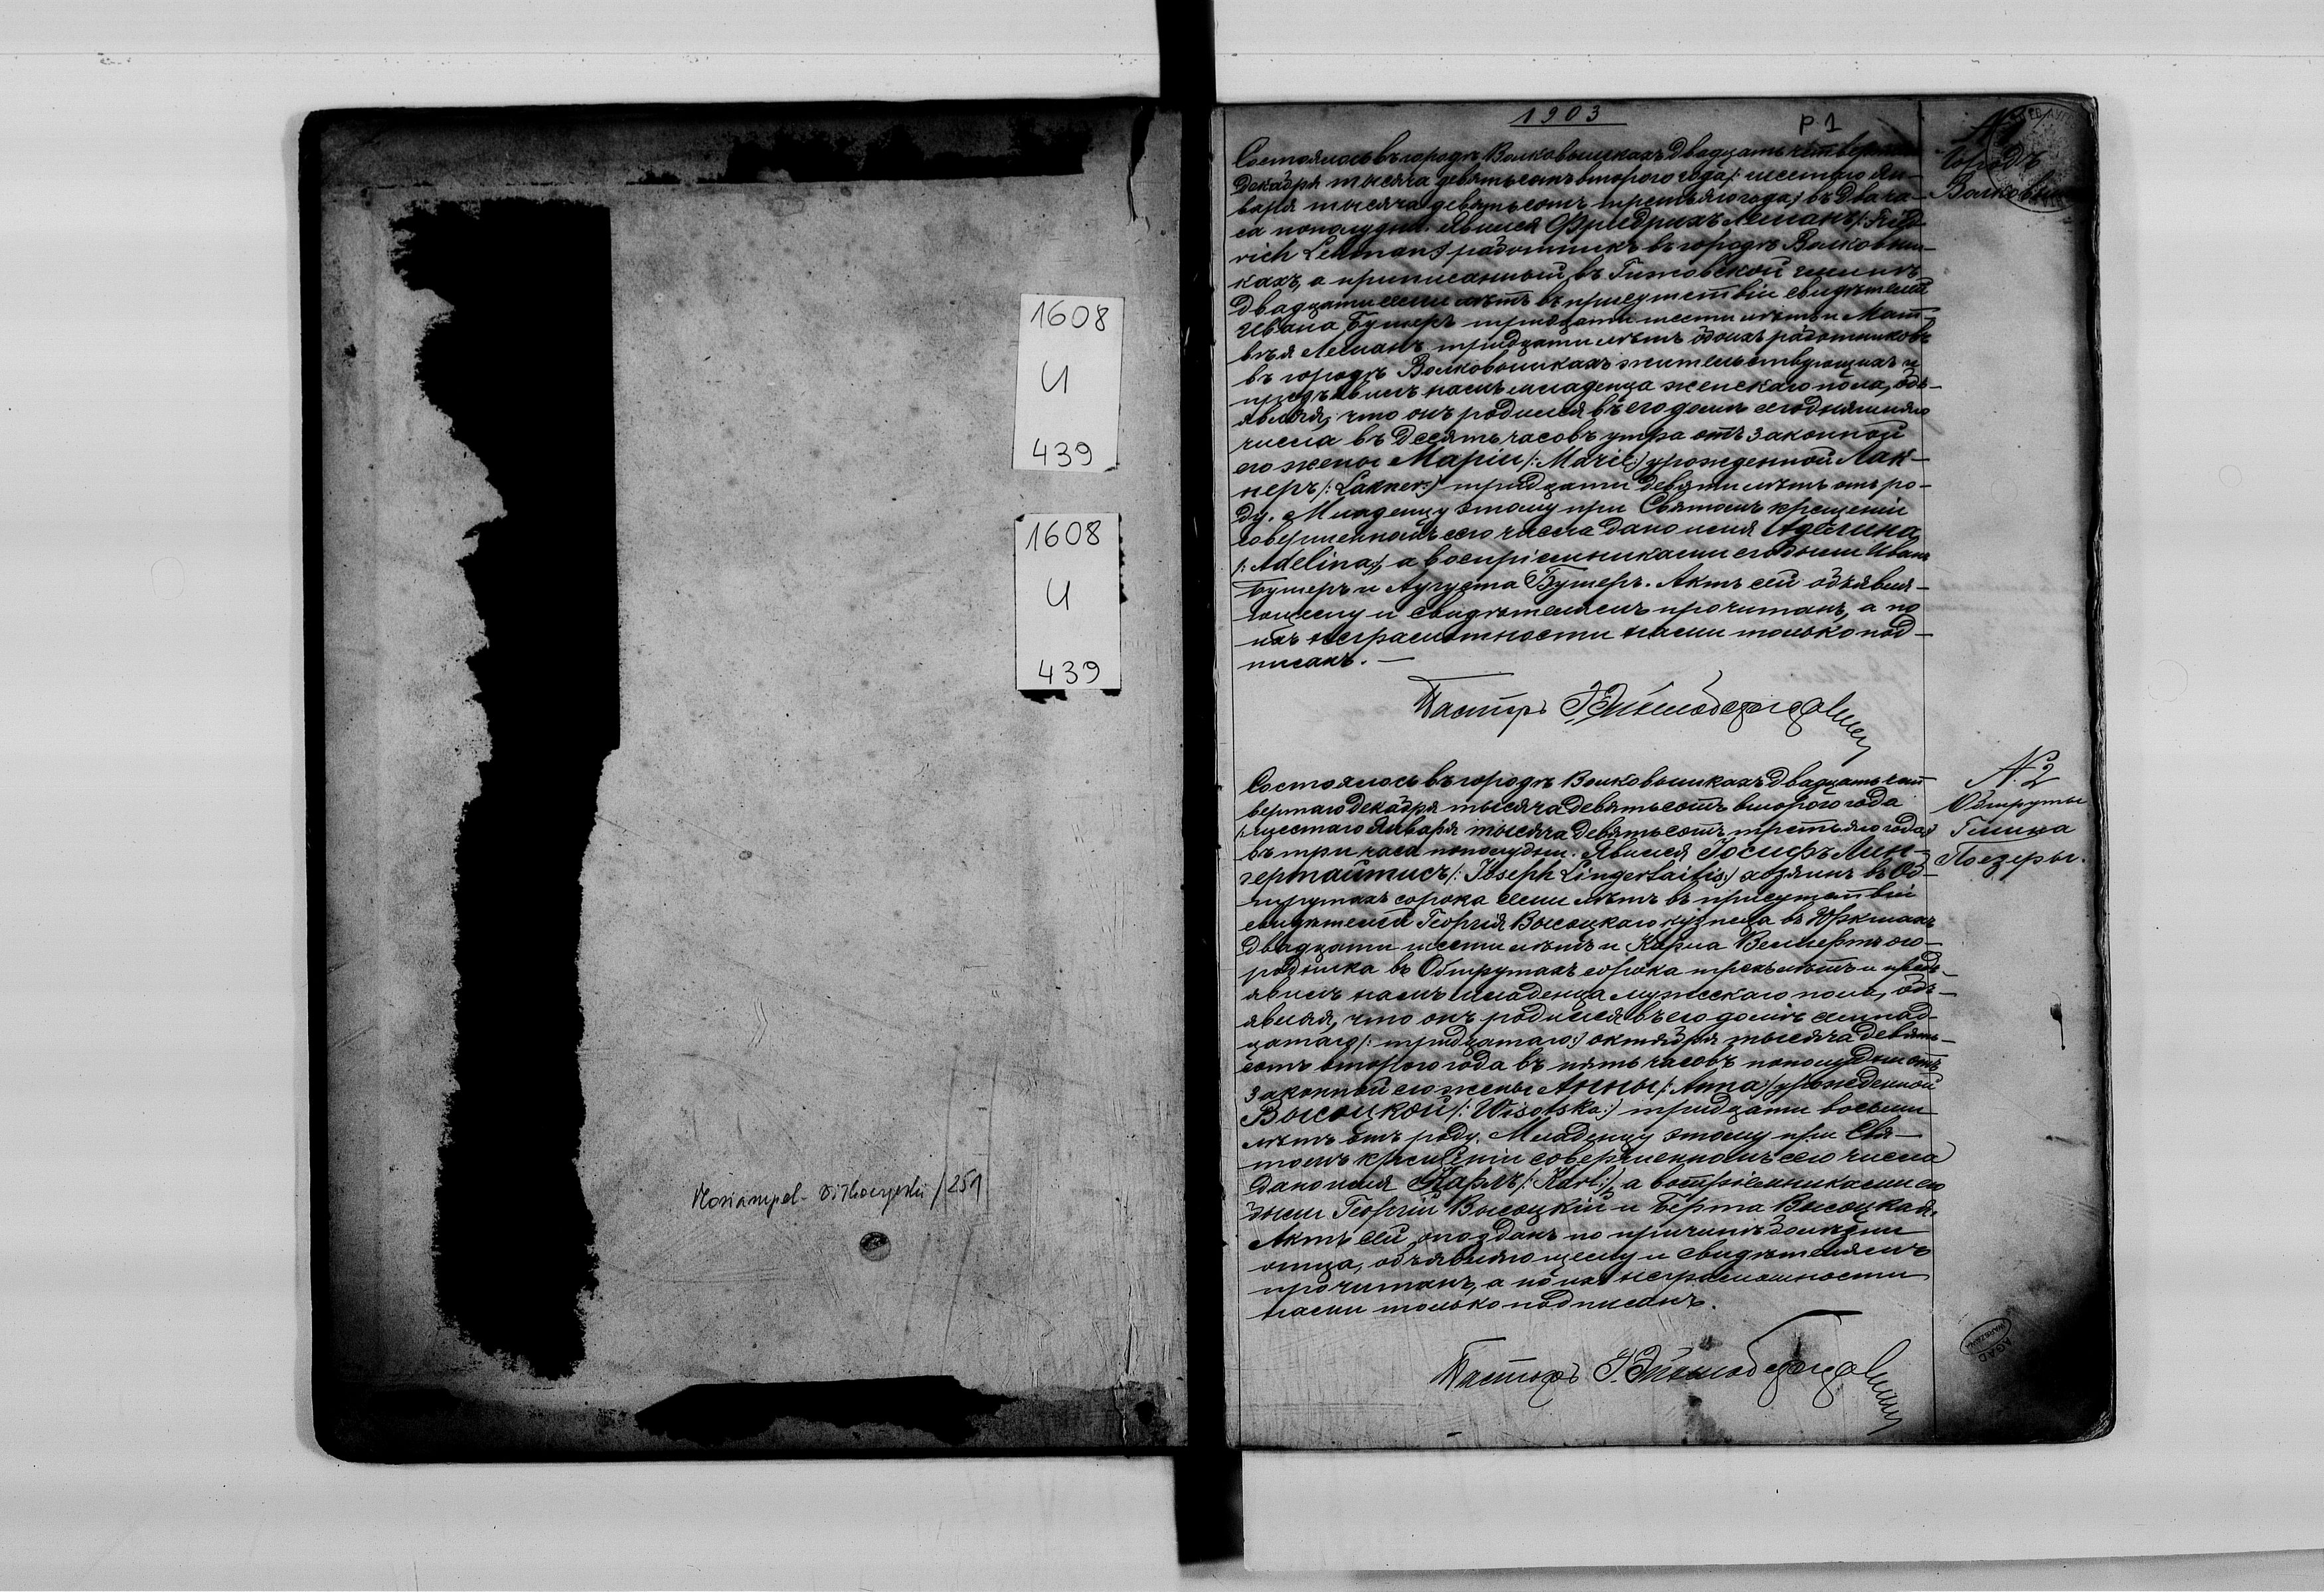 1608
U
439
1608
U
439
/251
1903
p 1
Состоялось въ городѣ Волковышкахъ двадцать четвертаго
декабря тысяча девятьсотъ второго года /: шестого Ян-
варя тысяча девятьсотъ третьяго года :/ въ два ча-
са пополудни. Явился Фридрихъ Леманъ /: Fried-
rich Lehman :/ работникъ въ городѣ Волковыш-
кахъ, а приписанный въ гминѣ
двадцати семи лѣтъ въ присутствіи свидѣтелей
Ивана Бушеръ тридцати шести лѣтъ и Мат-
вѣя Леманъ тридцати лѣтъ обоихъ работниковъ
въ городѣ Волковышкахъ жительствующихъ и
предъявилъ намъ младенца женскаго пола, объ-
являя, что онъ родился въ его домѣ сегодняшняго
числа въ десять часовъ утра отъ законной
его жены Маріи /: Marie :/ урожденной Лак-
неръ /: Lakner :/ тридцати девяти лѣтъ отъ ро-
ду. Младенцу этому при Святомъ крещеніи
совершенномъ сего числа дано имя Аделина
/: Adelina :/, а воспріемниками его были Иванъ
Бушеръ и Аугуста Бушеръ. Актъ сей объявля-
ющему и свидѣтелямъ прочитанъ, а по
ихъ неграмотности нами только под-
писанъ. —
Пасторъ
№ 1
Городъ
№ 2
Обшруты
Гмина
Поезеры.
Состоялось въ городѣ Волковышкахъ двадцать чет-
вертаго декабря тысяча девятьсотъ второго года
/: шестаго Января тысяча девятьсотъ третьяго года :/
въ три часа пополудни. Явился Іосифъ Лин-
гертайтисъ /: Joseph Lingertaitis :/ хозяинъ въ Об-
шрутахъ сорока семи лѣтъ въ присутствіи
свидѣтелей Георгія Высоцкаго кузнеца въ
двадцати шести лѣтъ и Карла ого-
родника въ Обшрутахъ сорока трехъ лѣтъ и предъ-
явилъ намъ младенца мужескаго пола, объ-
являя, что онъ родился въ его домѣ семнад-
цатаго /: тридцатаго :/ октября тысяча девять-
сотъ второго года въ пять часовъ пополудни отъ
законной его жены Анны /: Anna :/ урожденной
Высоцкой /: Wisotska :/ тридцати восьми
лѣтъ отъ роду. Младенцу этому при Свя-
томъ крещеніи совершенномъ сего числа
дано имя Карлъ /: Karl :/, а воспріемниками его
были Георгій Высоцкій и Берта Высоцкая.
Актъ сей опозданъ по причинѣ болѣзни
отца, объявляющему и свидѣтелямъ
прочитанъ, а по ихъ неграмотности
нами только подписанъ.
Пасторъ
AGAD